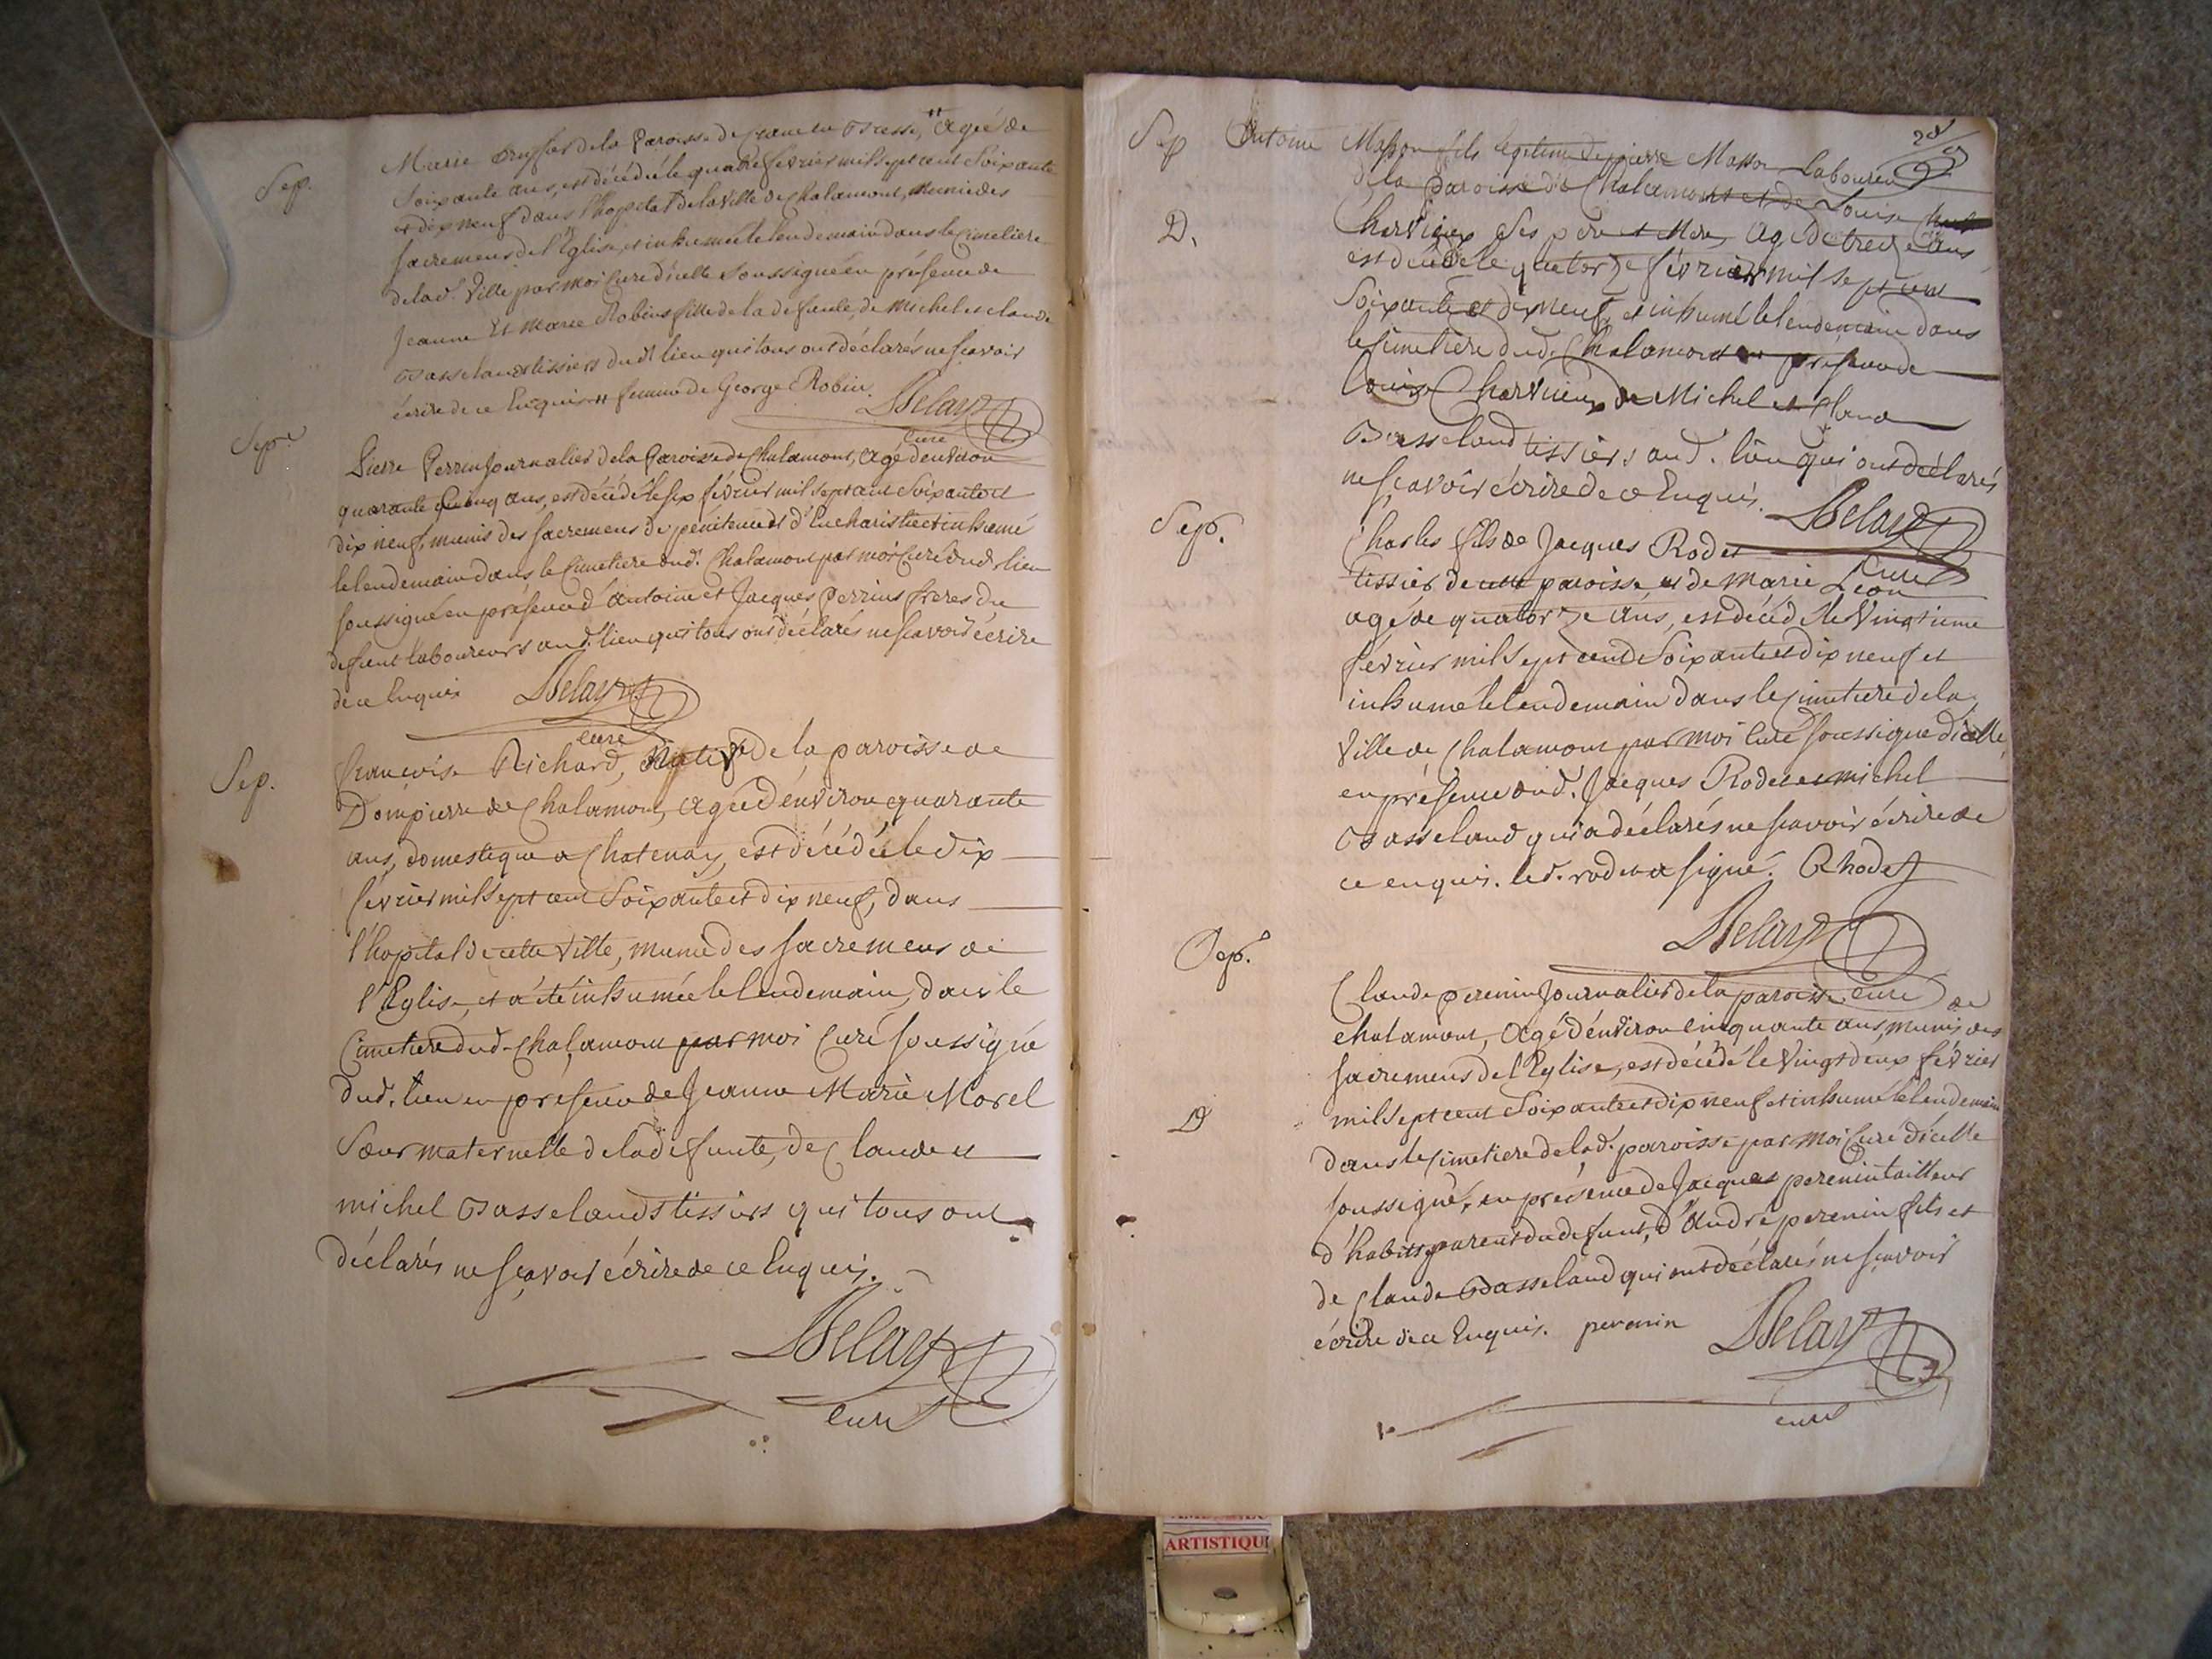 Sep.
Marie de la Paroisse de Crans en Bresse, " agée de
Soixante ans, est décédée le quatre fevrier mil sept cent Soixante
et dix neuf dans l'hopital de la Ville de Chalamont, munie des
sacremens de l'Eglise, et inhumée le lendemain dans le cimetiere
de lad. Ville par moi Curé d'icelle Soussigné en présence de
Jeanne Et Marie Robins filles de la defunte, de Michel et claude
Basselands tissiers dudt lieu qui tous ont déclarés ne scavoir
écrire de ce Enquis " femme de George Robin.
Delay
Curé
Sep.
Pierre Perrin Journalier de la Paroisse de Chalamont, agé d'environ
quarante cinq ans, est décédé le six février mil sept cent Soixante et
dix neuf, munis des sacremens de pénitence et d'Eucharistie et inhumé
le lendemain dans le Cimetiere dud. Chalamont par moi Curé dud. lieu
soussigné en présence d'antoine et Jacques Perrins freres du
defunt laboureurs aud. lieu qui tous ont déclarés ne scavoir écrire
de ce Enquis Delay
curé
Sep.
francoise Richard, Native de la paroisse de
Dompierre de Chalamont, agée d'environ quarante
ans, domestique a Chatenay, est décédée le dix
février mil sept cent Soixante et dix neuf, dans
l'hopital de cette Ville, munie des sacremens de
l'Eglise, et a été inhumée le lendemain, dans le
Cimetiere dud. Chalamont par moi Curé soussigné
dud. lieu en présence de Jeanne Marie Morel
Sœur maternelle de la defunte, de Claude et
michel Basselands tissiers qui tous ont
déclarés ne scavoir écrire de ce Enquis.
Delay
curé
Sep Antoine Masson fils legitime de pierre Masson Laboureur
de la paroisse de Chalamont et de Louise
D.
Charvieux Ses pere et Mere, agé de treize ans
est décédé le quatorze février mil sept cent
Soixante et dix neuf, et inhumé le lendemain dans
le cimetiere dud. Chalamont en présence de
Louise Charvieux de Michel et Claude
Basseland tissiers aud. lieu qui ont déclarés
ne scavoir écrire de ce Enquis.
Delay
Curé
Sep.
Charles fils de Jacques Rodet
tissier de cette paroisse et de Marie Leon
agé de quatorze ans, est décédé le Vingtieme
février mil sept cent Soixante et dix neuf et
inhumé le lendemain dans le Cimetiere de la
Ville de Chalamont par moi Curé soussigné d'icelle
en présence dud. Jacques Rodet et michel
Basseland qui a déclarés ne scavoir écrire de
ce enquis. led. rodet a signé. Rhodet
Delay
curé
Sep.
Claude perenin Journalier de la paroisse de
chalamont, agé d'environ cinquante ans, munis des
sacremens de l'Eglise, est décédé le Vingt deux février
mil sept cent Soixante et dix neuf et inhumé le lendemain
D
dans le cimetiere de lad. paroisse par moi Curé d'icelle
soussigné, en présence de Jacques perenin tailleur
d'habits parent du defunt, d'André perenin fils et
de Claude Basseland qui ont déclarés ne scavoir
écrire de ce Enquis. perenin Delay
curé
ARTISTIQU